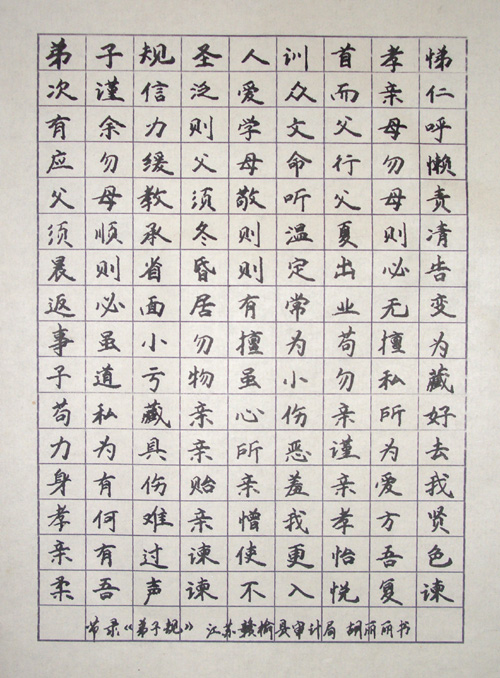 弟子规圣人训首孝悌
次谨信泛爱众而亲仁
有余力则学文父母呼
应勿缓父母命行勿懒
父母教须敬听父母责
须顺承冬则温夏则凊
晨则省昏则定出必告
返必面居有常业无变
事虽小勿擅为苟擅为
子道亏物虽小勿私藏
苟私藏亲心伤亲所好
力为具亲所恶谨为去
身有伤贻亲羞亲爱我
孝何难亲憎我孝方贤
亲有过谏使更怡吾色
柔吾声谏不入悦复谏
节录《弟子规》 江苏赣榆县审计局 胡丽丽书